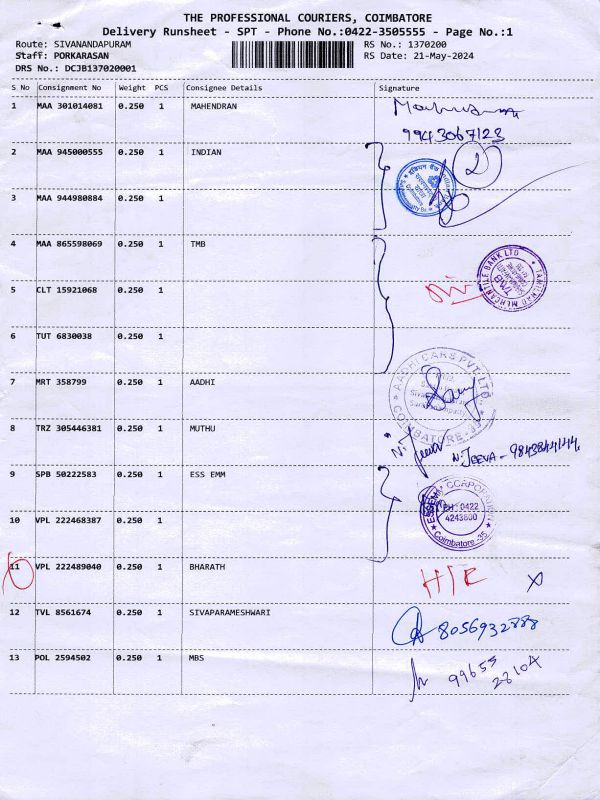 THE PROFESSIONAL COURIERS, COIMBATORE
Delivery Runsheet - SPT - Phone No.:0422-3505555 - Page No.:1
Route: SIVANANDAPURAM
RS No.: 1370200
Staff: PORKARASAN
RS Date: 21-May-2024
DRS No.: DCJB137020001
S No Consignment No Weight PCS Consignee Details Signature
1 MAA 301014081 0.250 1 MAHENDRAN
9943067123
2 MAA 945000555 0.250 1 INDIAN
2
3 MAA 944980884 0.250 1
4 MAA 865598069 0.250 1 TMB
TAMILNAD MERCANTILE BANK LTD
TMB
5 CLT 15921068 0.250 1
6 TUT 6830038 0.250 1
7 MRT 358799 0.250 1 AADHI
AADHI CARS PVT. LTD.
COIMBATORE-35
8 TRZ 305446381 0.250 1 MUTHU
N. Jeeva N. JEEVA - 9843844144.
9 SPB 50222583 0.250 1 ESS EMM
PH: 0422
4243800
Coimbatore-35
10 VPL 222468387 0.250 1
11 VPL 222489040 0.250 1 BHARATH
X
12 TVL 8561674 0.250 1 SIVAPARAMESHWARI
8056932888
13 POL 2594502 0.250 1 MBS
99655
28104